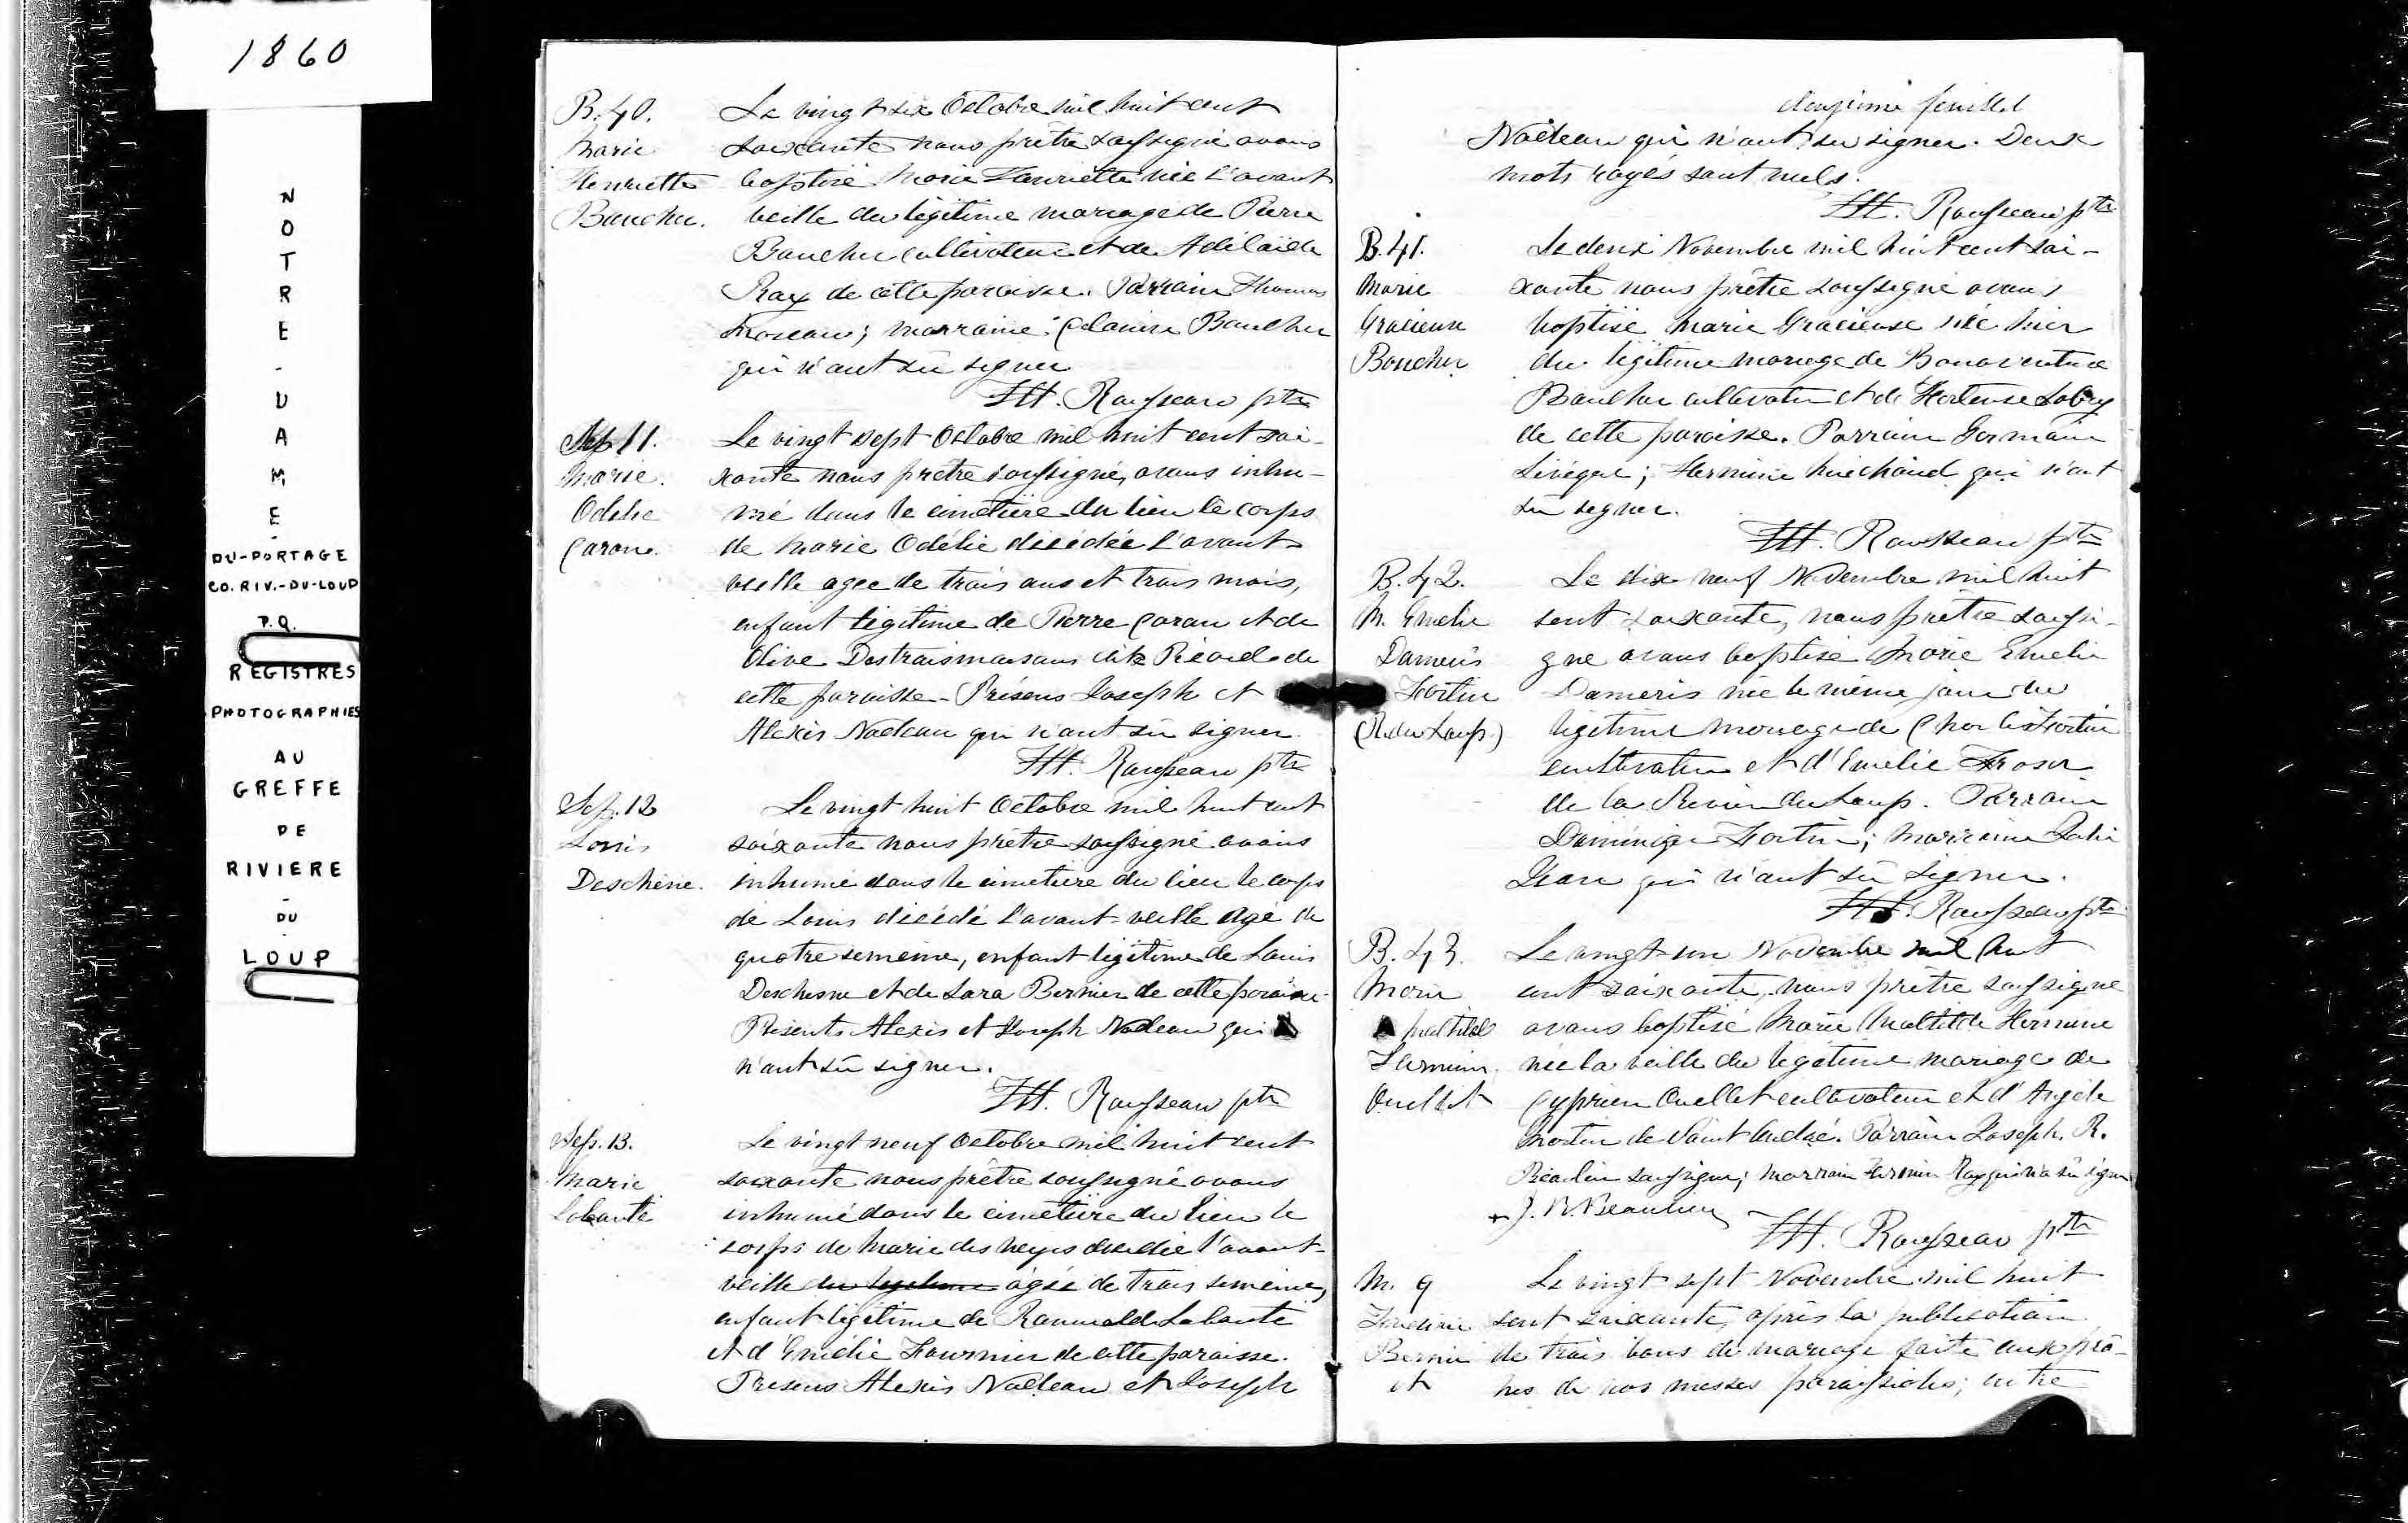 1860
NOTRE-DAME-
DU-PORTAGE
CO. RIV.-DU-LOUP
P.Q.
REGISTRES
PHOTOGRAPHIES
AU
GREFFE
DE
RIVIERE
-
DU
-
LOUP
B.40.
Marie
Henriette
Boucher.
Le vingt six Octobre mil huit cent
soixante nous prêtre soussigné avons
baptisé Marie Henriette née l'avant
veille du légitime mariage de Pierre
Boucher cultivateur et de Adélaïde
Roy de cette paroisse. Parrain Thomas
marraine Boucher
qui n'ont sû signer
Rousseau ptre
Sep. 11.
Marie
Odelie
Caron.
Le vingt sept Octobre mil huit cent soi-
xante nous prêtre soussigné, avons inhu-
mé dans le cimetière du lieu le corps
de Marie Odelie décédée l'avant
veille agee de trois ans et trois mois,
enfant légitime de Pierre Caron et de
Olive Destroismaisons dite Picard de
cette paroisse. Présens Joseph et
Alexis Nadeau qui n'ont sû signer.
Rousseau ptre
Sep. 12
Louis
Deschène.
Le vingt huit Octobre mil huit cent
soixante nous prêtre soussigné avons
inhumé dans le cimetière du lieu le corps
de Louis décédé l'avant-veille agé de
quatre semeine, enfant légitime de Louis
Deschesne et de Sara Bernier de cette paroisse.
Présents Alexis et Joseph Nadeau qui
n'ont sû signer.
Rousseau ptre
Sep. 13.
Marie
Labonté
Le vingt neuf Octobre mil huit cent
soixante nous prêtre soussigné avons
inhumé dans le cimetière du lieu le
corps de Marie des neiges décédée l'avant-
veille du légitime âgée de trois semeine,
enfant légitime de Romuald Labonté
et d'Emélie Fournier de cette paroisse.
Présens Alexis Nadeau et Joseph
deuxieme feuillet
Nadeau qui n'ont su signer. Deux
mots rayés sont nuls.
Rousseau ptre
B.41.
Marie
Gracieuse
Boucher
Le deux Novembre mil huit cent soi-
xante nous prêtre soussigné avons
baptisé Marie Gracieuse née hier
du légitime mariage de Bonaventure
Boucher cultivateur et de Hortense
de cette paroisse. Parrain Germain
Hermine Michaud qui n'ont
sû signer.
Rousseau ptre
B.42.
M. Emelie
Dameris
Fortin
(R. du Loup.)
Le dix-neuf Novembre mil huit
cent soixante, nous prêtre soussi-
gné avons baptisé Marie Emelie
Dameris née le même jour du
légitime mariage de Charles Fortin
cultivateur et d'Emelie Fraser
de la Rivière du Loup. Parrain
Dominique Fortin; Marraine
qui n'ont sû signer.
Rousseau ptre
B.43.
Marie
Mathilde
Hermine
Ouellet
Le vingt-un Novembre mil huit
cent soixante, nous prêtre soussigné
avons baptisé Marie Mathilde Hermine
née la veille du légitime mariage de
Cyprien Ouellet cultivateur et d'Angele
Morin de Saint André. Parrain Joseph. R.
Beaulieu soussigné; marraine Hermine Roy qui n'a sû signer
+ J. R. Beaulieu
Rousseau ptre
M. 9
Bernier
et
Le vingt sept Novembre mil huit
cent soixante, après la publication
de trois bans de mariage faite aux prô-
nes de nos messes paroissiales; entre